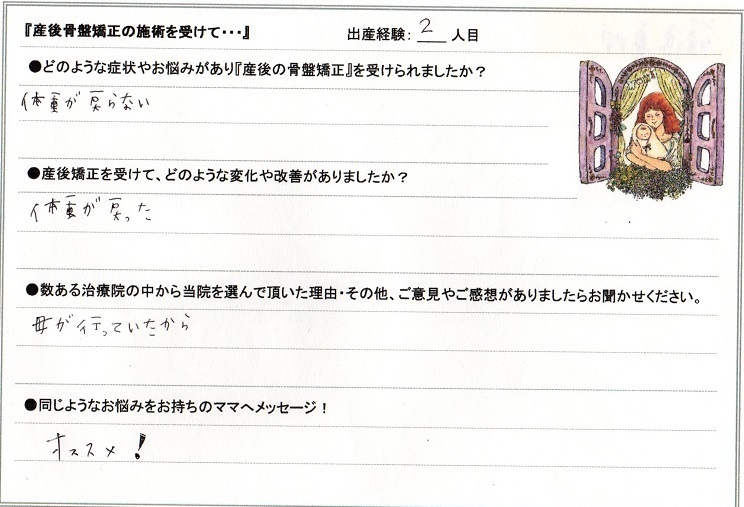 『産後骨盤矯正の施術を受けて・・・』 出産経験: 2 人目
●どのような症状やお悩みがあり『産後の骨盤矯正』を受けられましたか？
体重が戻らない
●産後矯正を受けて、どのような変化や改善がありましたか？
体重が戻った
●数ある治療院の中から当院を選んで頂いた理由・その他、ご意見やご感想がありましたらお聞かせください。
母が行っていたから
●同じようなお悩みをお持ちのママへメッセージ！
オススメ！